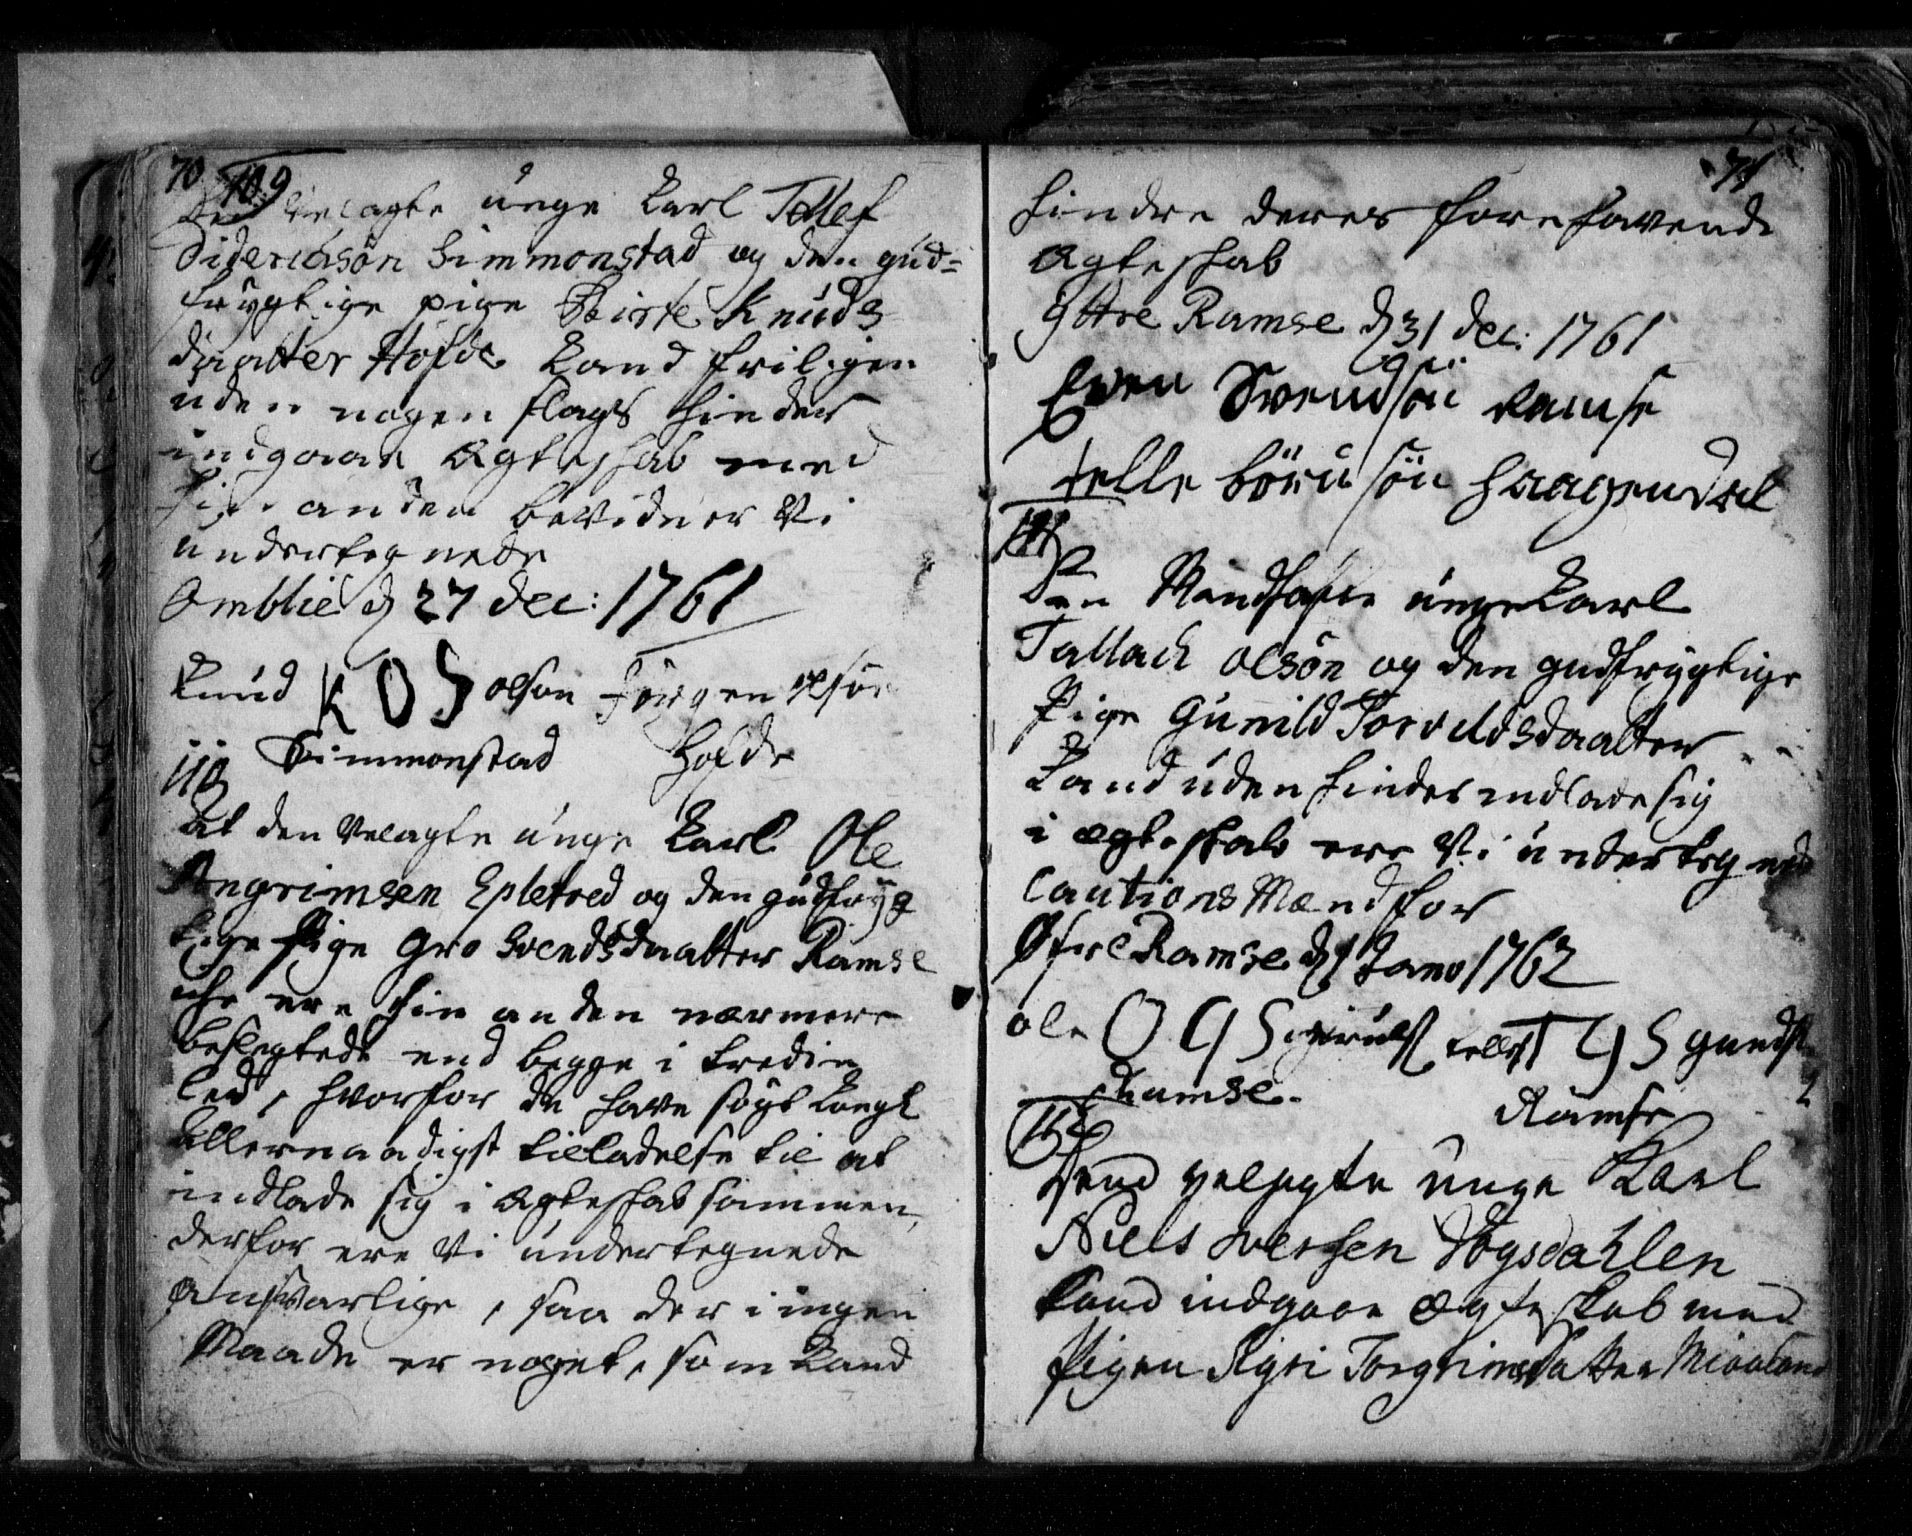 70 109
Den Velagte unge Karl Tellef
Diderichsøn Simmonstad og den gud-
frygtige pige Birte Knuds
daatter Hofde kand friligen
uden nogen slags hinder
indgaae Ægteskab med
hin anden bevidner Vi
undertegnede
Omblie d 27 dec: 1761
Knud KOS olsøn Jørgen olsøn
Simmonstad Hofde
110
At den Velagte unge Karl Ole
Angrimsen Epletved og den gudfrygt
tige Pige Gro Svendsdaatter Ramse
ike ere hin anden nærmere
beslegtede end begge i tredie
led, hvorfor de have søgt kongl
Allernaadigst tilladelse til at
indlade sig i Ægteskab sammen,
derfor ere Vi undertegnede
ansvarlige, saa der i ingen
Maade er noget, som kand
71
hindre deres forehavende
Ægteskab
Yttre Ramse d 31 dec: 1761
Even Svendsøn Ramse
telle børusøn Haagendal
111
Den Mandhafte unge Karl
Tallack olsøn og den gudfrygtige
Pige Gunild Torvildsdaatter
kand uden hinder indlade sig
i ægteskab ere Vi undertegnede
Cautions Mænd for
Øfre Ramse d 1 Janv 1762
ole OGS tellef TGS gunds
Ramse. Ramse
112
Dend velagte unge Karl
Niels Iversen Høgsdahlen
kand indgaae Ægteskab med
Pigen Sigri Torgrimsdatter Miaaland